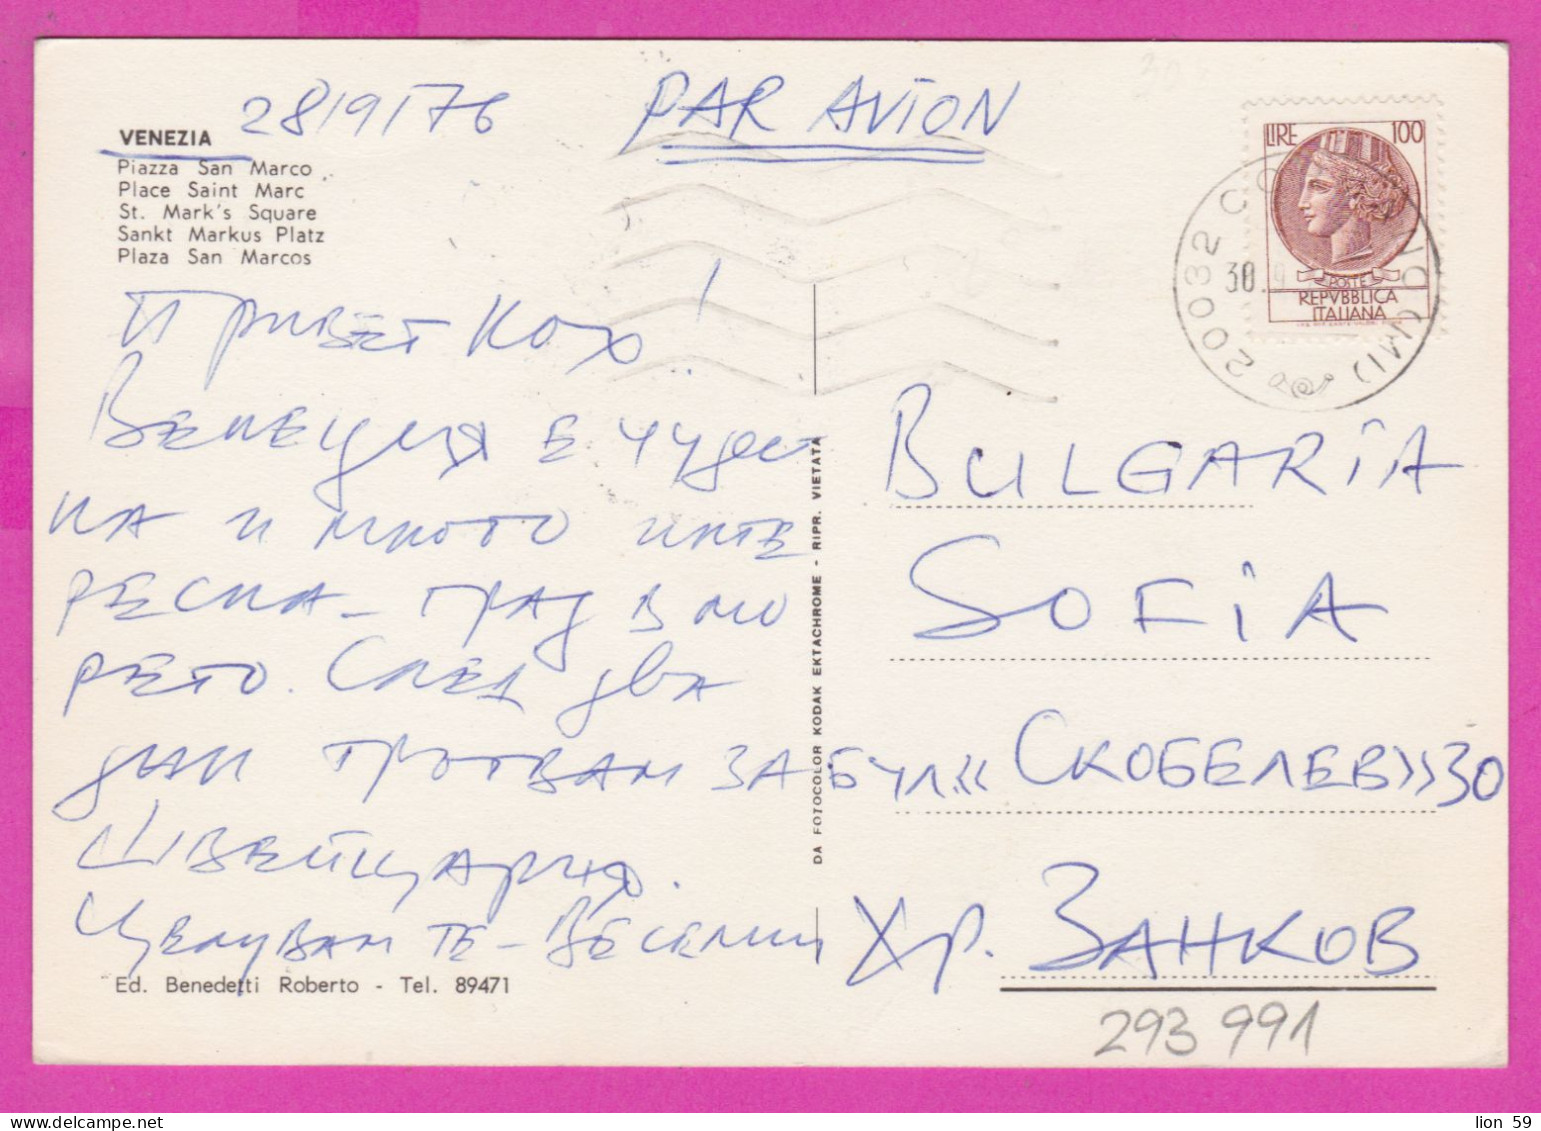 28/9/76 PAR AVION
VENEZIA
Piazza San Marco
Place Saint Marc
St. Mark's Square
Sankt Markus Platz
Plaza San Marcos
LIRE 100
POSTE
REPVBBLICA
ITALIANA
20032 CO (MI)
30.9
Привет
Венеция е чудес
на и много инте
ресна - град в мо
рето. След два
дни тръгвам за
Швейцария.
Целувам те - Веселин
BULGARIA
SOFIA
БУЛ. «СКОБЕЛЕВ» 30
Хр. ЗАНКОВ
DA FOTOCOLOR KODAK EKTACHROME - RIPR. VIETATA
Ed. Benedetti Roberto - Tel. 89471
293 991
30
lion 59
www.delcampe.net